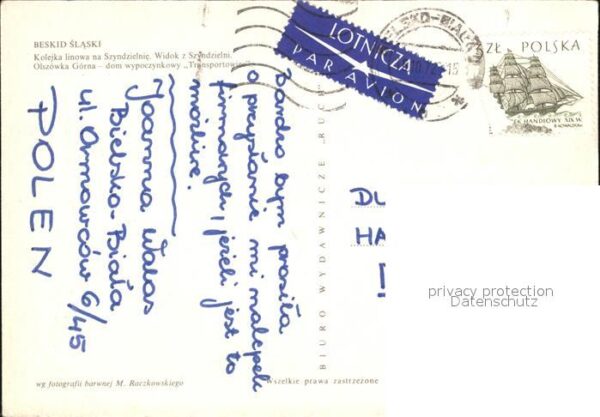 BESKID ŚLĄSKI
Kolejka linowa na Szyndzielnię. Widok z Szyndzielni.
Olszówka Górna – dom wypoczynkowy „Transportowiec"
LOTNICZA
PAR AVION
ZŁ POLSKA
HANDLOWY XIX W.
Bardzo bym prosiła
o przysłanie mi nalepek
firmowych, jeżeli jest to
możliwe.
Joanna Walas
Bielsko-Biała
ul. Armowców 6/45
POLEN
BIURO WYDAWNICZE „RUCH"
DU
HA
privacy protection
Datenschutz
wg fotografii barwnej M. Raczkowskiego
Wszelkie prawa zastrzeżone